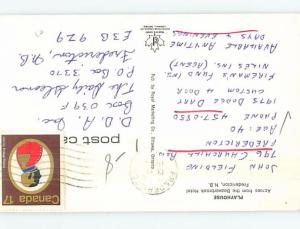 PLAYHOUSE
Across from the Beaverbrook Hotel
Fredericton, N.B.
JOHN FIELDING
796 CHURCHILL ROW
FREDERICTON
AGE: 40
PHONE 457-0850
1975 DODGE DART
CUSTOM 4 DOOR
FIREMAN'S FUND INS.
NILES INC. (AGENT)
AVAILABLE ANYTIME
DAYS & EVENINGS
post ca
D.D.A. Inc.
Box 039F
The Daily Gleaner
PO Box 3370
Fredericton, N.B.
E3B 9Z9
Canada 17
-8